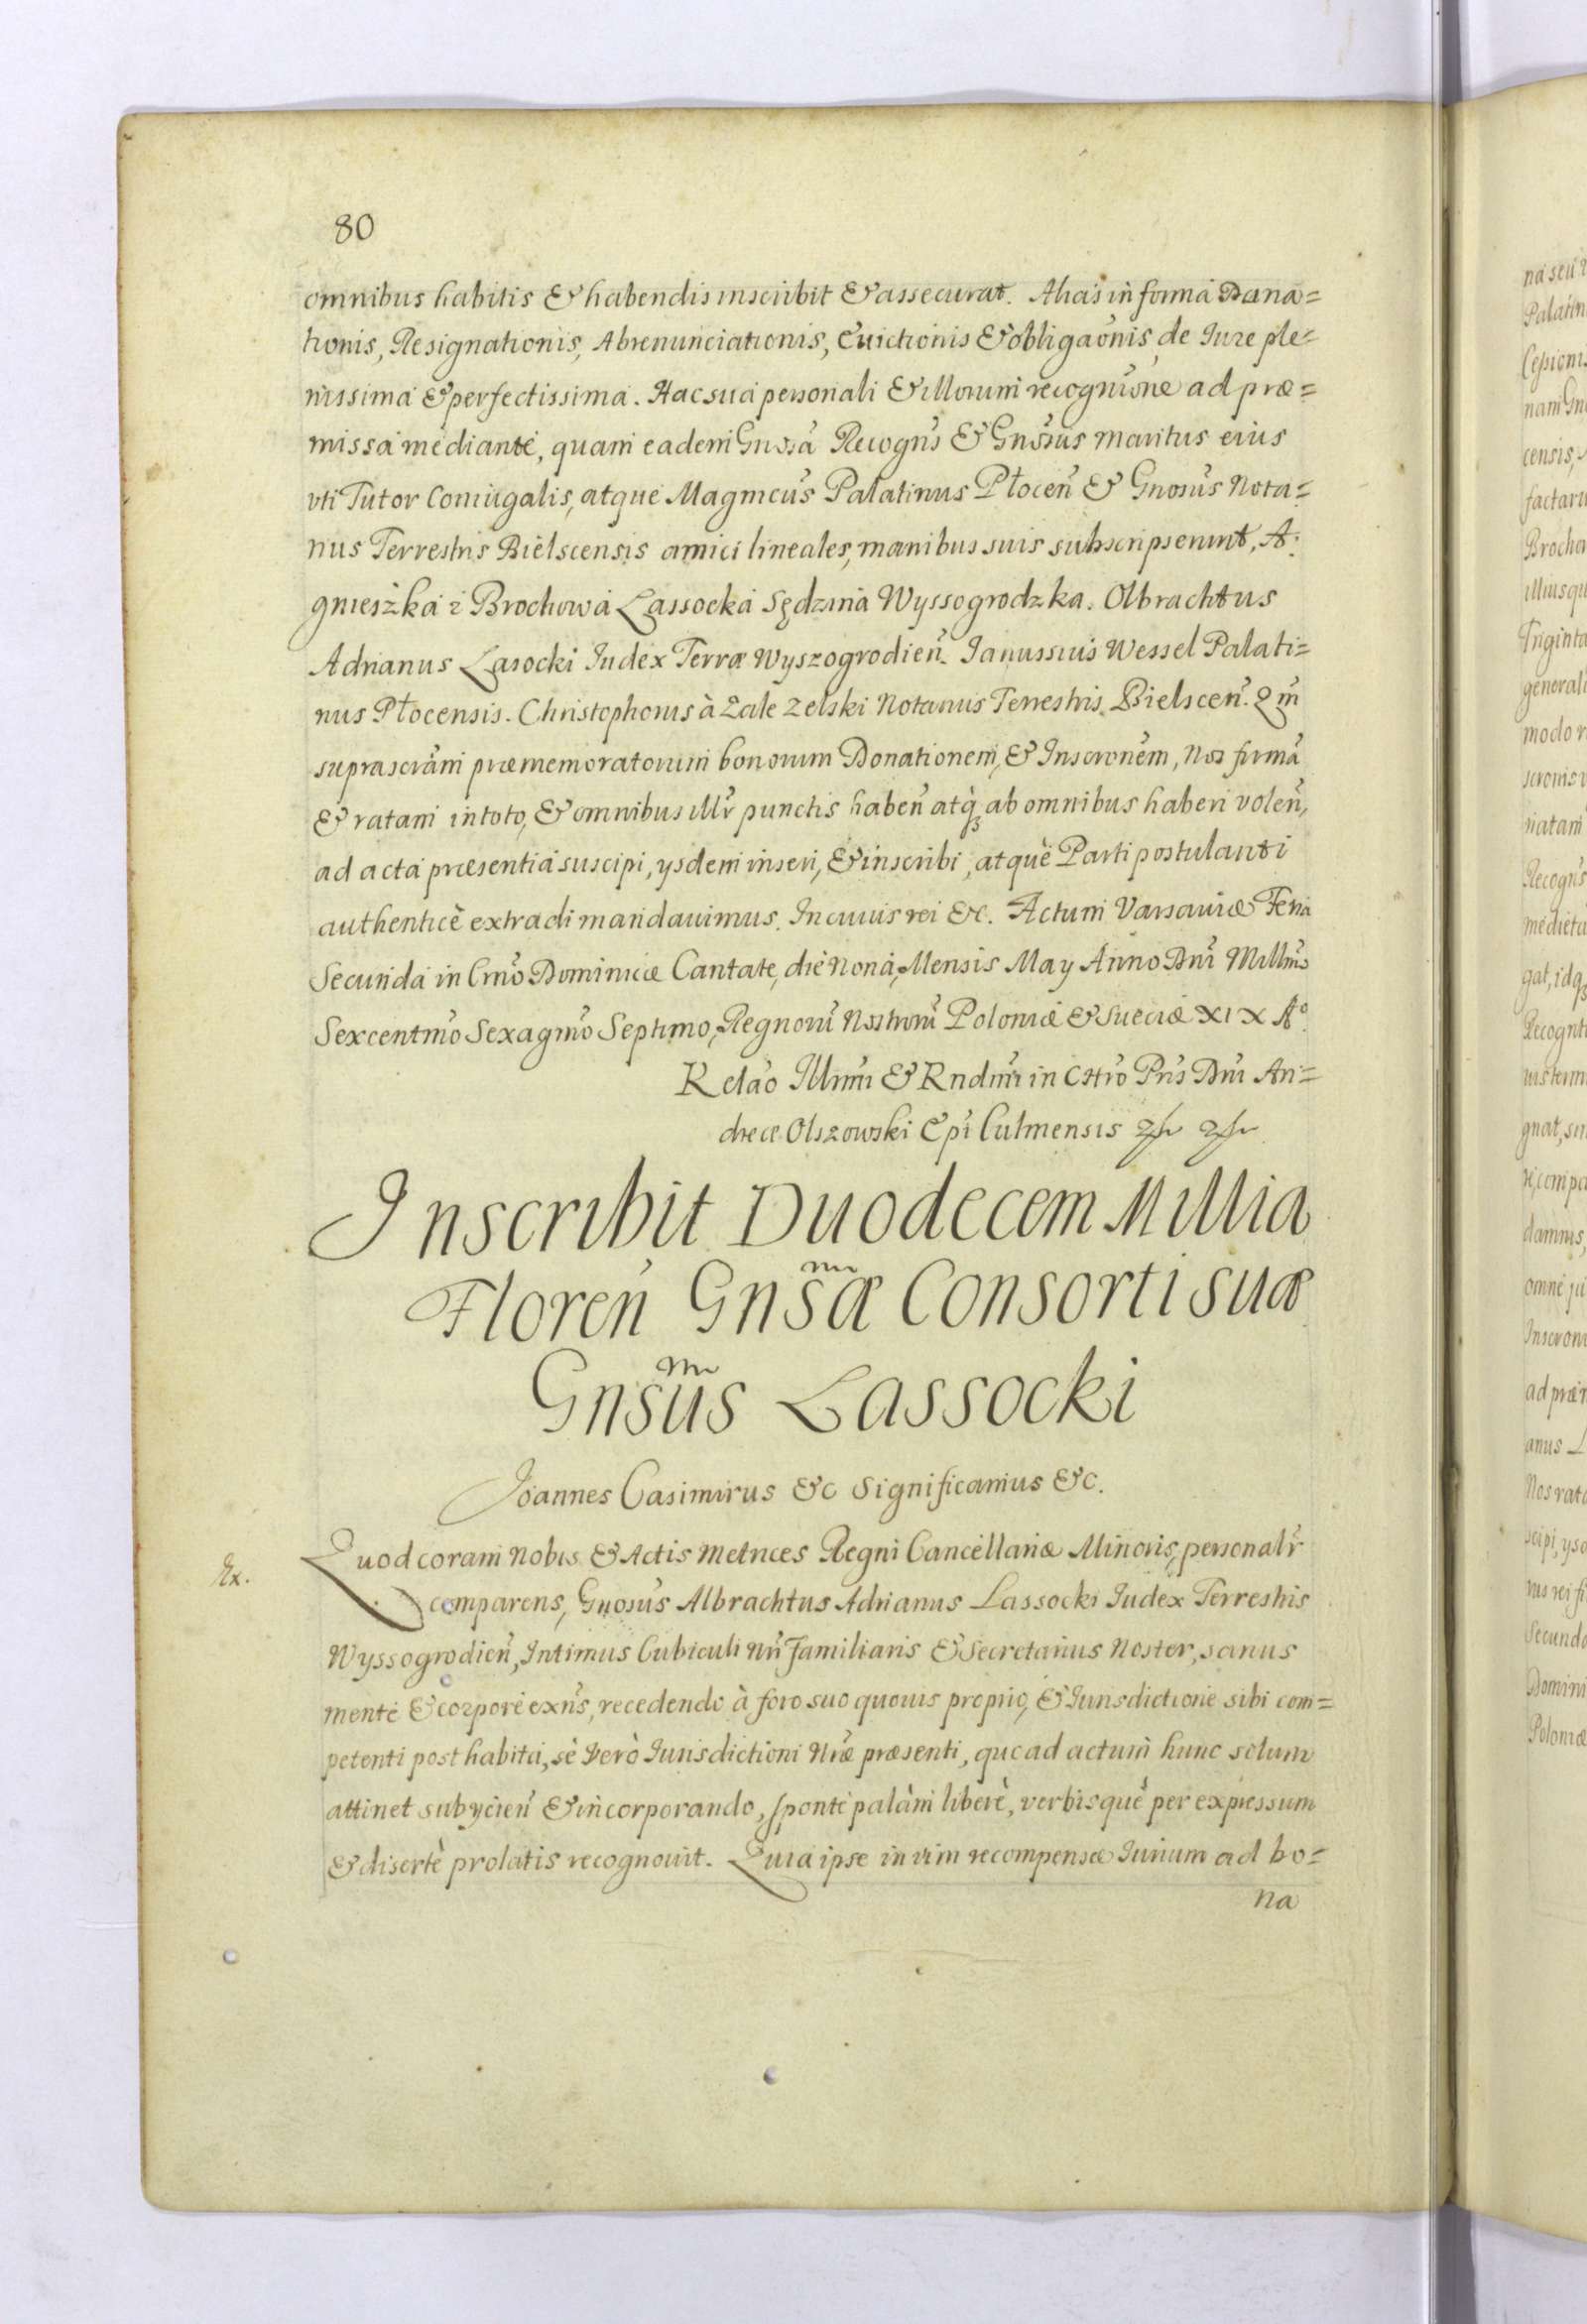 80
omnibus habitis & habendis inscribit & assecurat. Alias in forma Dona=
tionis, Resignationis, Abrenunciationis, Euictionis & obligaönis, de Iure ple=
nissima & perfectissima. Hac sua personali & illorum recognione ad præ=
missa mediante, quam eadem Gnosa Recogns & Gnosus maritus eius
vti Tutor Coniugalis, atque Magnicus Palatinus Płocen & Gnosus Nota=
rius Terrestris Bielscensis amici lineales, manibus suis subscripserunt, A=
gnieszka z Brochowa Lassocka Sędzina Wyssogrodzka. Olbrachtus
Adrianus Lasocki Iudex Terræ Wyszogrodien. Ianussius Wessel Palati=
nus Płocensis. Christophorus à Zale Zelski Notarius Terrestris Bielscen. Qm
suprascram præmemoratorum bonorum Donationem, & Inscronem, Nos firma
& ratam in toto, & omnibus illr punctis haben atq ab omnibus haberi volen,
ad acta præsentia suscipi, ysdem inseri, & inscribi, atquè Parti postulanti
authenticè extradi mandauimus. In cuius rei &c. Actum Varsauiæ Feria
Secunda in Crno Dominicæ Cantate, die Nona, Mensis May Anno Dni Millmo
Sexcentmo Sexagmo Septimo, Regnoru Nostroru Poloniæ & Sueciæ XIX Ao
Relao Illmi & Rndmi in Chro Pris Dni An=
dreæ Olszowski Epi Culmensis
Inscribit Duodecem Millia
Floren Gnsæ Consorti suæ
Gnsus Lassocki
Ioannes Casimirus &c Significamus &c.
Rx.
Quod coram Nobis & Actis Metrices Regni Cancellariæ Minoris, personalr
comparens, Gnosus Albrachtus Adrianus Lassocki Iudex Terrestris
Wyssogrodien, Intimus Cubiculi Nri Familiaris & Secretarius Noster, sanus
mente & corpore exns, recedendo à foro suo quouis proprio, & Iurisdictione sibi com=
petenti post habita, sè verò Iurisdictioni Nræ præsenti, quo ad actum hunc solum
attinet subycien & incorporando, sponte palàm liberè, verbisquè per expressum
& disertè prolatis recognouit. Quia ipse in vim recompensæ Iurium ad bo=
na